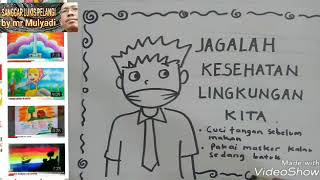 SANGGAR LUKIS PELANGI
by mr Mulyadi
JAGALAH
KESEHATAN
LINGKUNGAN
KITA
• Cuci tangan sebelum
makan
• pakai masker kalau
sedang batuk
Made with
VideoShow